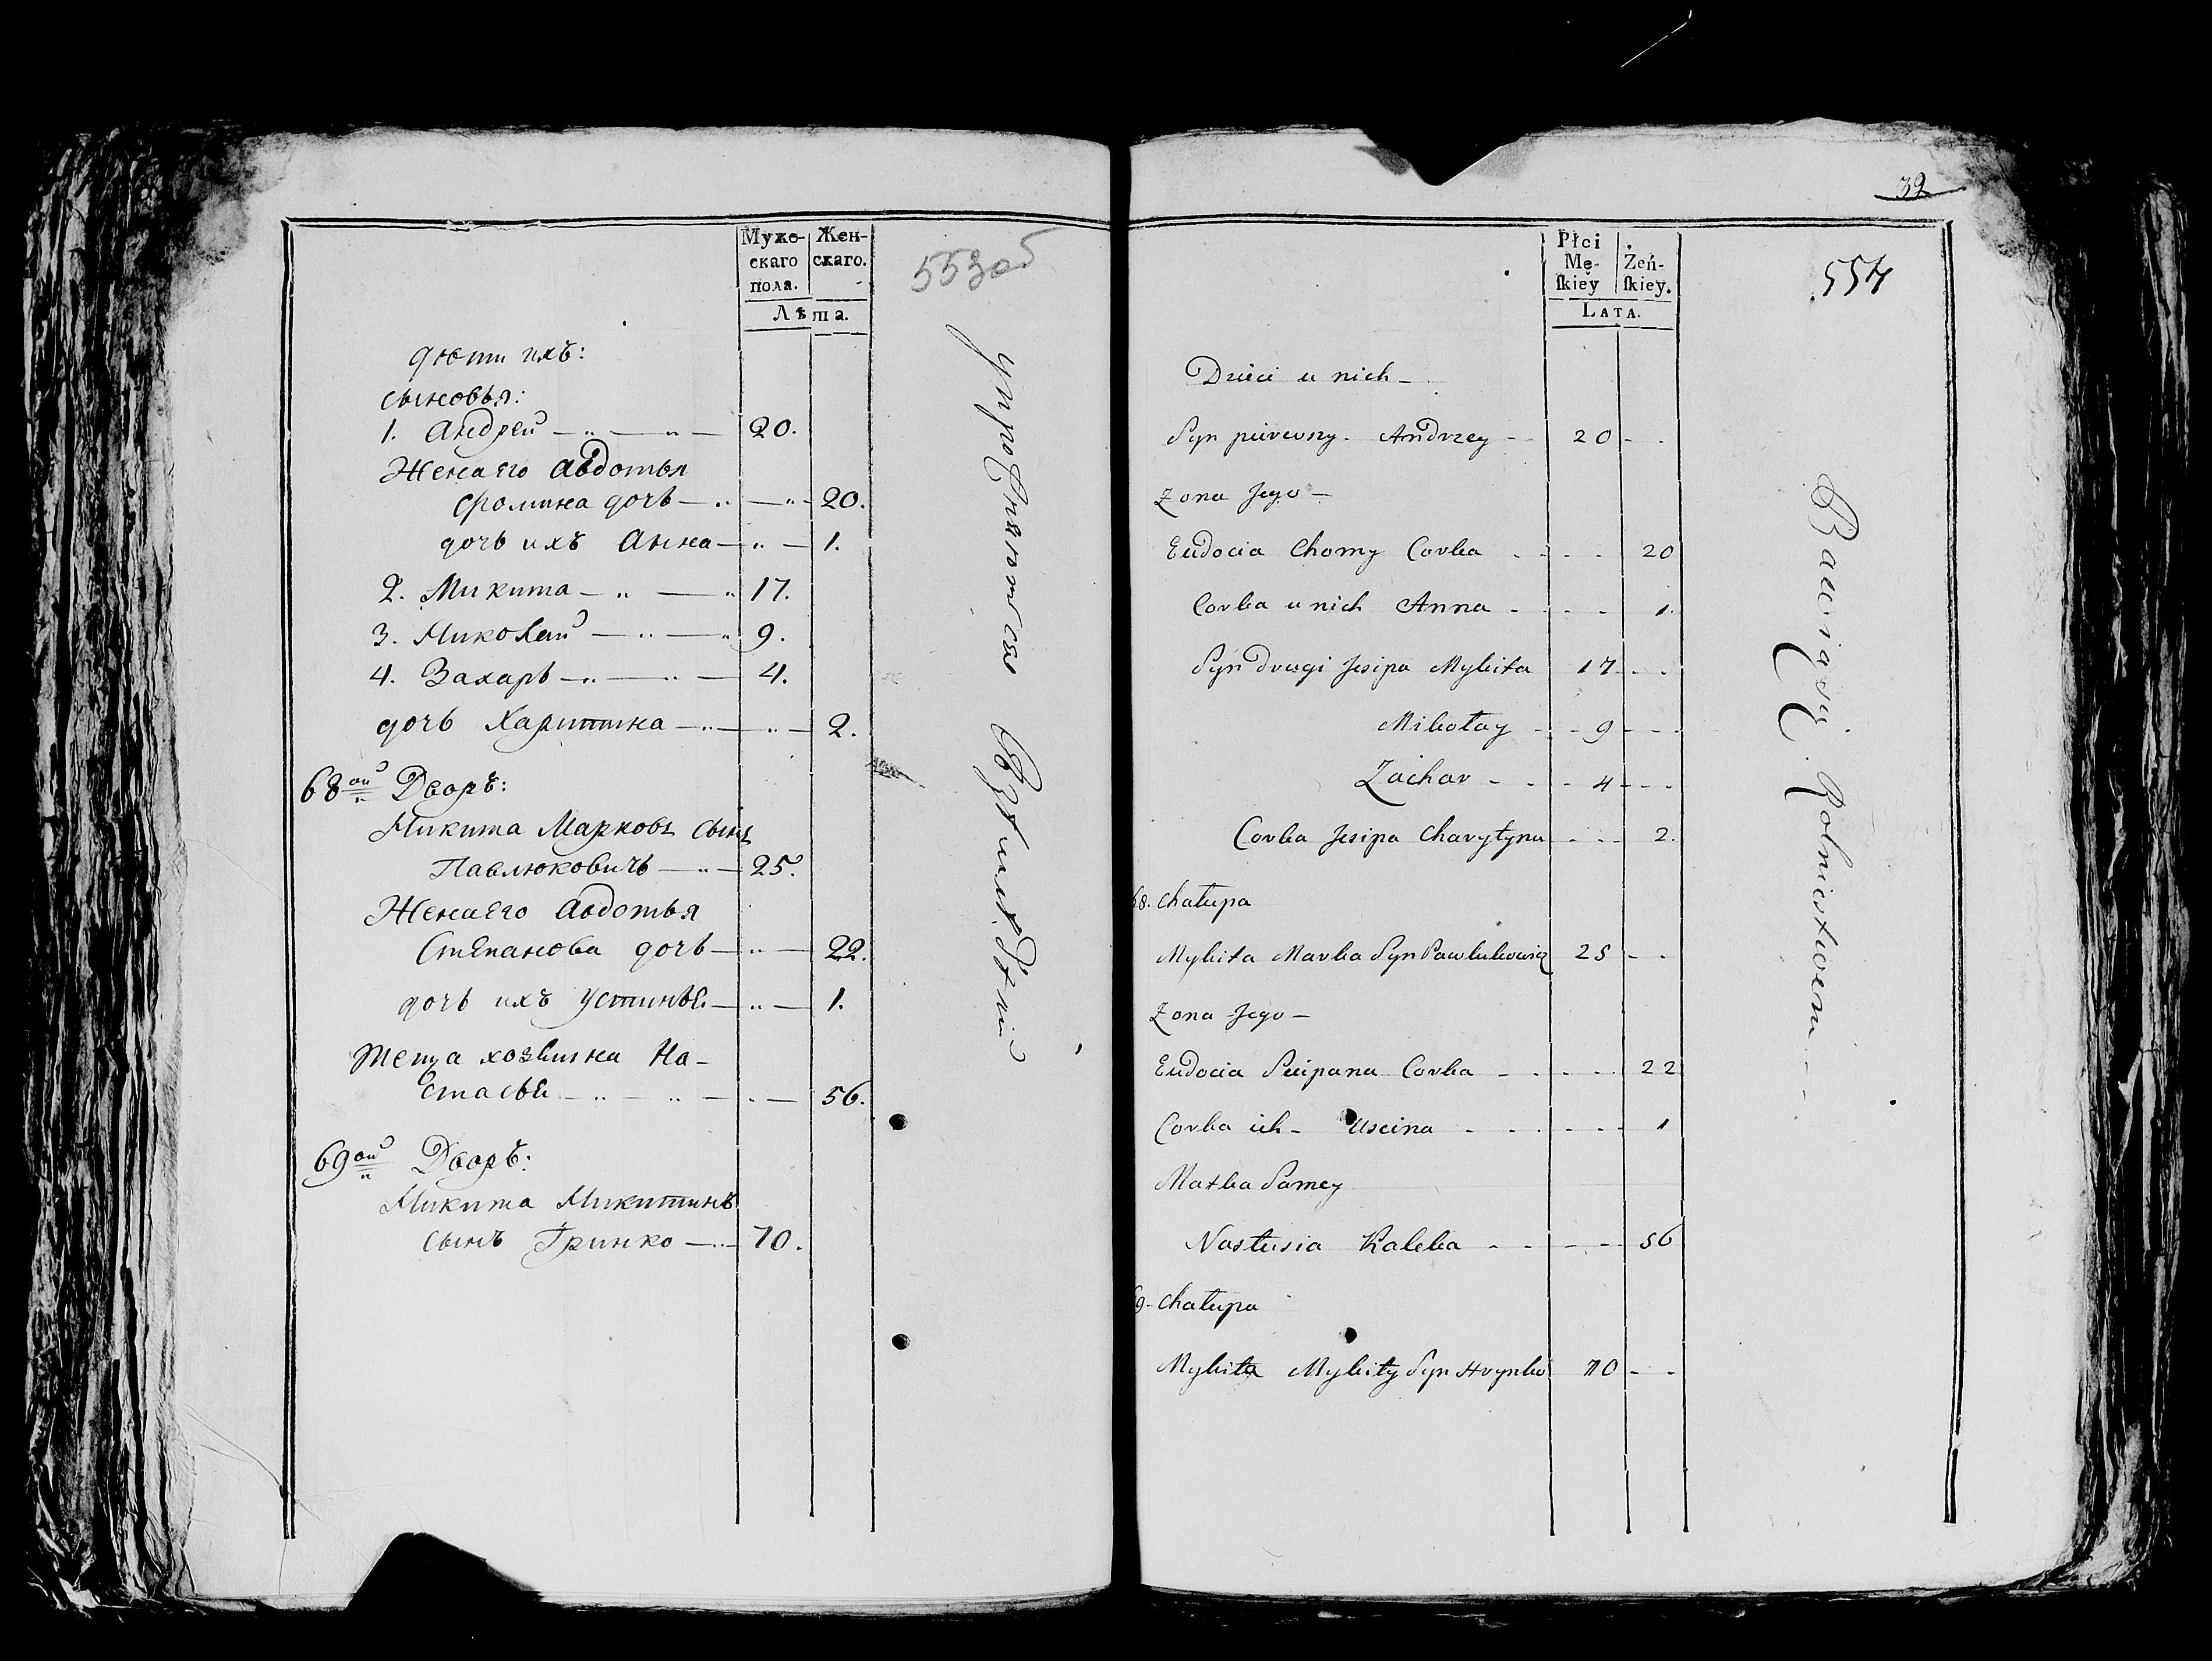 Муже-
скаго
пола.
Жен-
скаго.
Лѣта.
553об
дѣти ихъ:
сыновья:
1. Андрей — „ — „ — 20.
Жена его Авдотья
Фомина дочь — „ — „ — 20.
дочь ихъ Анна — „ — 1.
2. Микита — „ — „ 17.
3. Миколай — „ — „ 9.
4. Захаръ — „ — „ — 4.
дочь Харитина — „ — „ — 2.
68ой Дворъ:
Микита Марковъ сынъ
Павлюковичь — „ — 25.
Жена его Авдотья
Степанова дочь — „ — 22.
дочь ихъ Устинья — „ — 1.
Теща хозяина На-
стасья — „ — „ — 56.
69ой Дворъ:
Микита Микитинъ
сынъ Гринко — „ — 70.
упражняются
39
554
Płci
Mę-
ſkiey
Żeń-
ſkiey.
LATA.
Dzieci u nich -
Syn pierwszy. Andrzey - - 20 - -
Zona Jego -
Eudocia Chomy Corka - - - 20
Corka u nich Anna - - - 1.
Syn drugi Jesipa Mykita 17 - -
Mikołay - - 9 - - -
Zachar - - - 4 - - -
Corka Jesipa Charytyna - - - 2.
68. Chałupa
Mykita Marka Syn Pawlukowicz 25 - -
Zona Jego -
Eudocia Sciepana Corka - - - 22
Corka ich - Uscina - - - 1
Matka Samey
Nastusia Kaleka - - - 56
69. Chałupa
Mykita Mykity Syn Hrynko 70 - -
Bawią się Rolnictwem - -